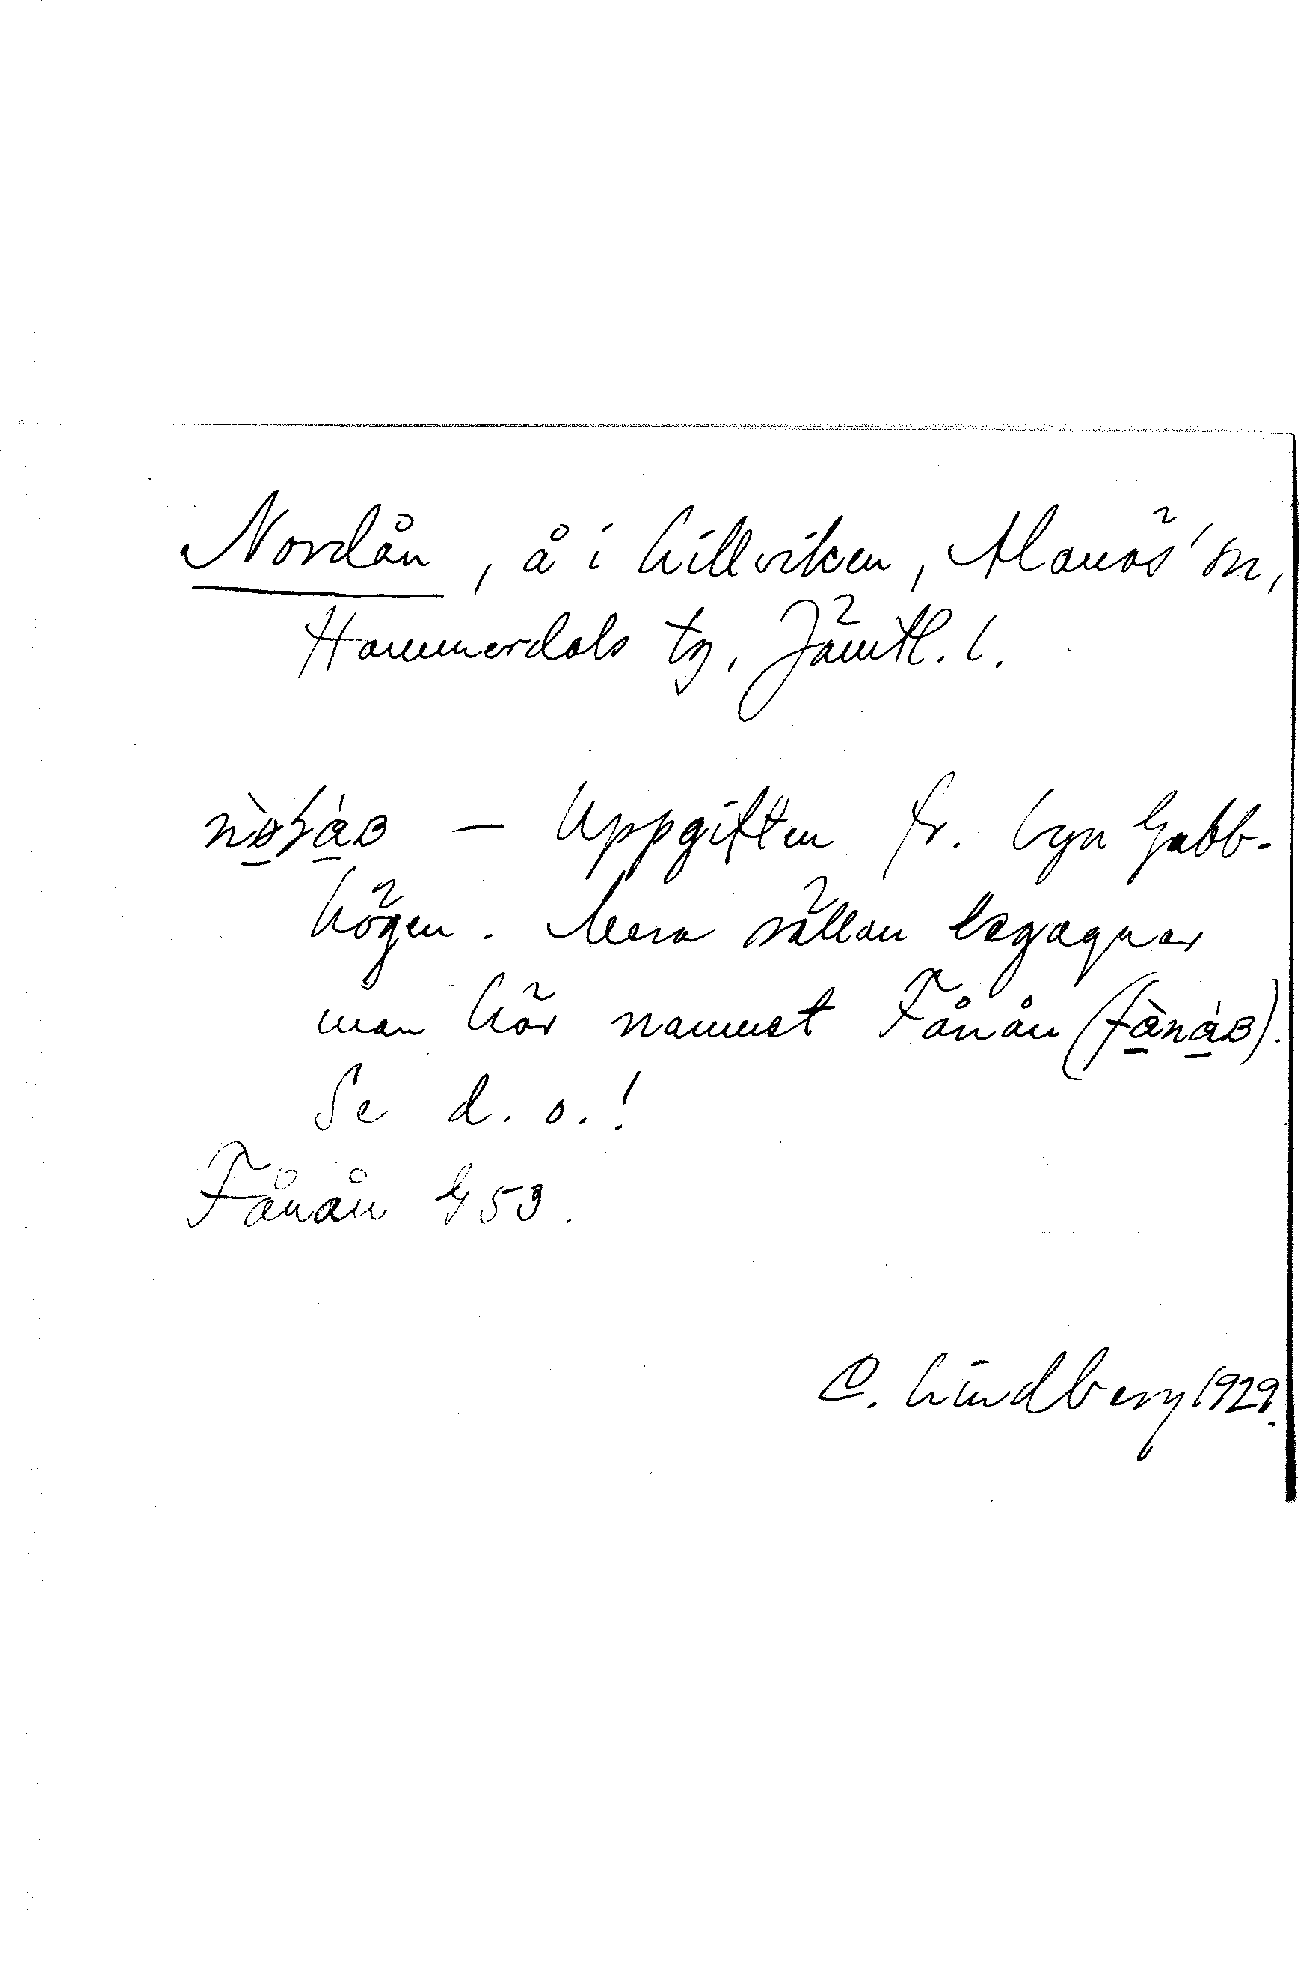 Nordån, å i Hillviken, Alanäs' sn,
Hammerdals tg, Jämtl. l.
– Uppgiften fr. byn Gubb-
högen. Mera sällan begagnar
man här namnet Fånån
Se d. o.!
Fånån G 53.
C. Lindberg 1929.